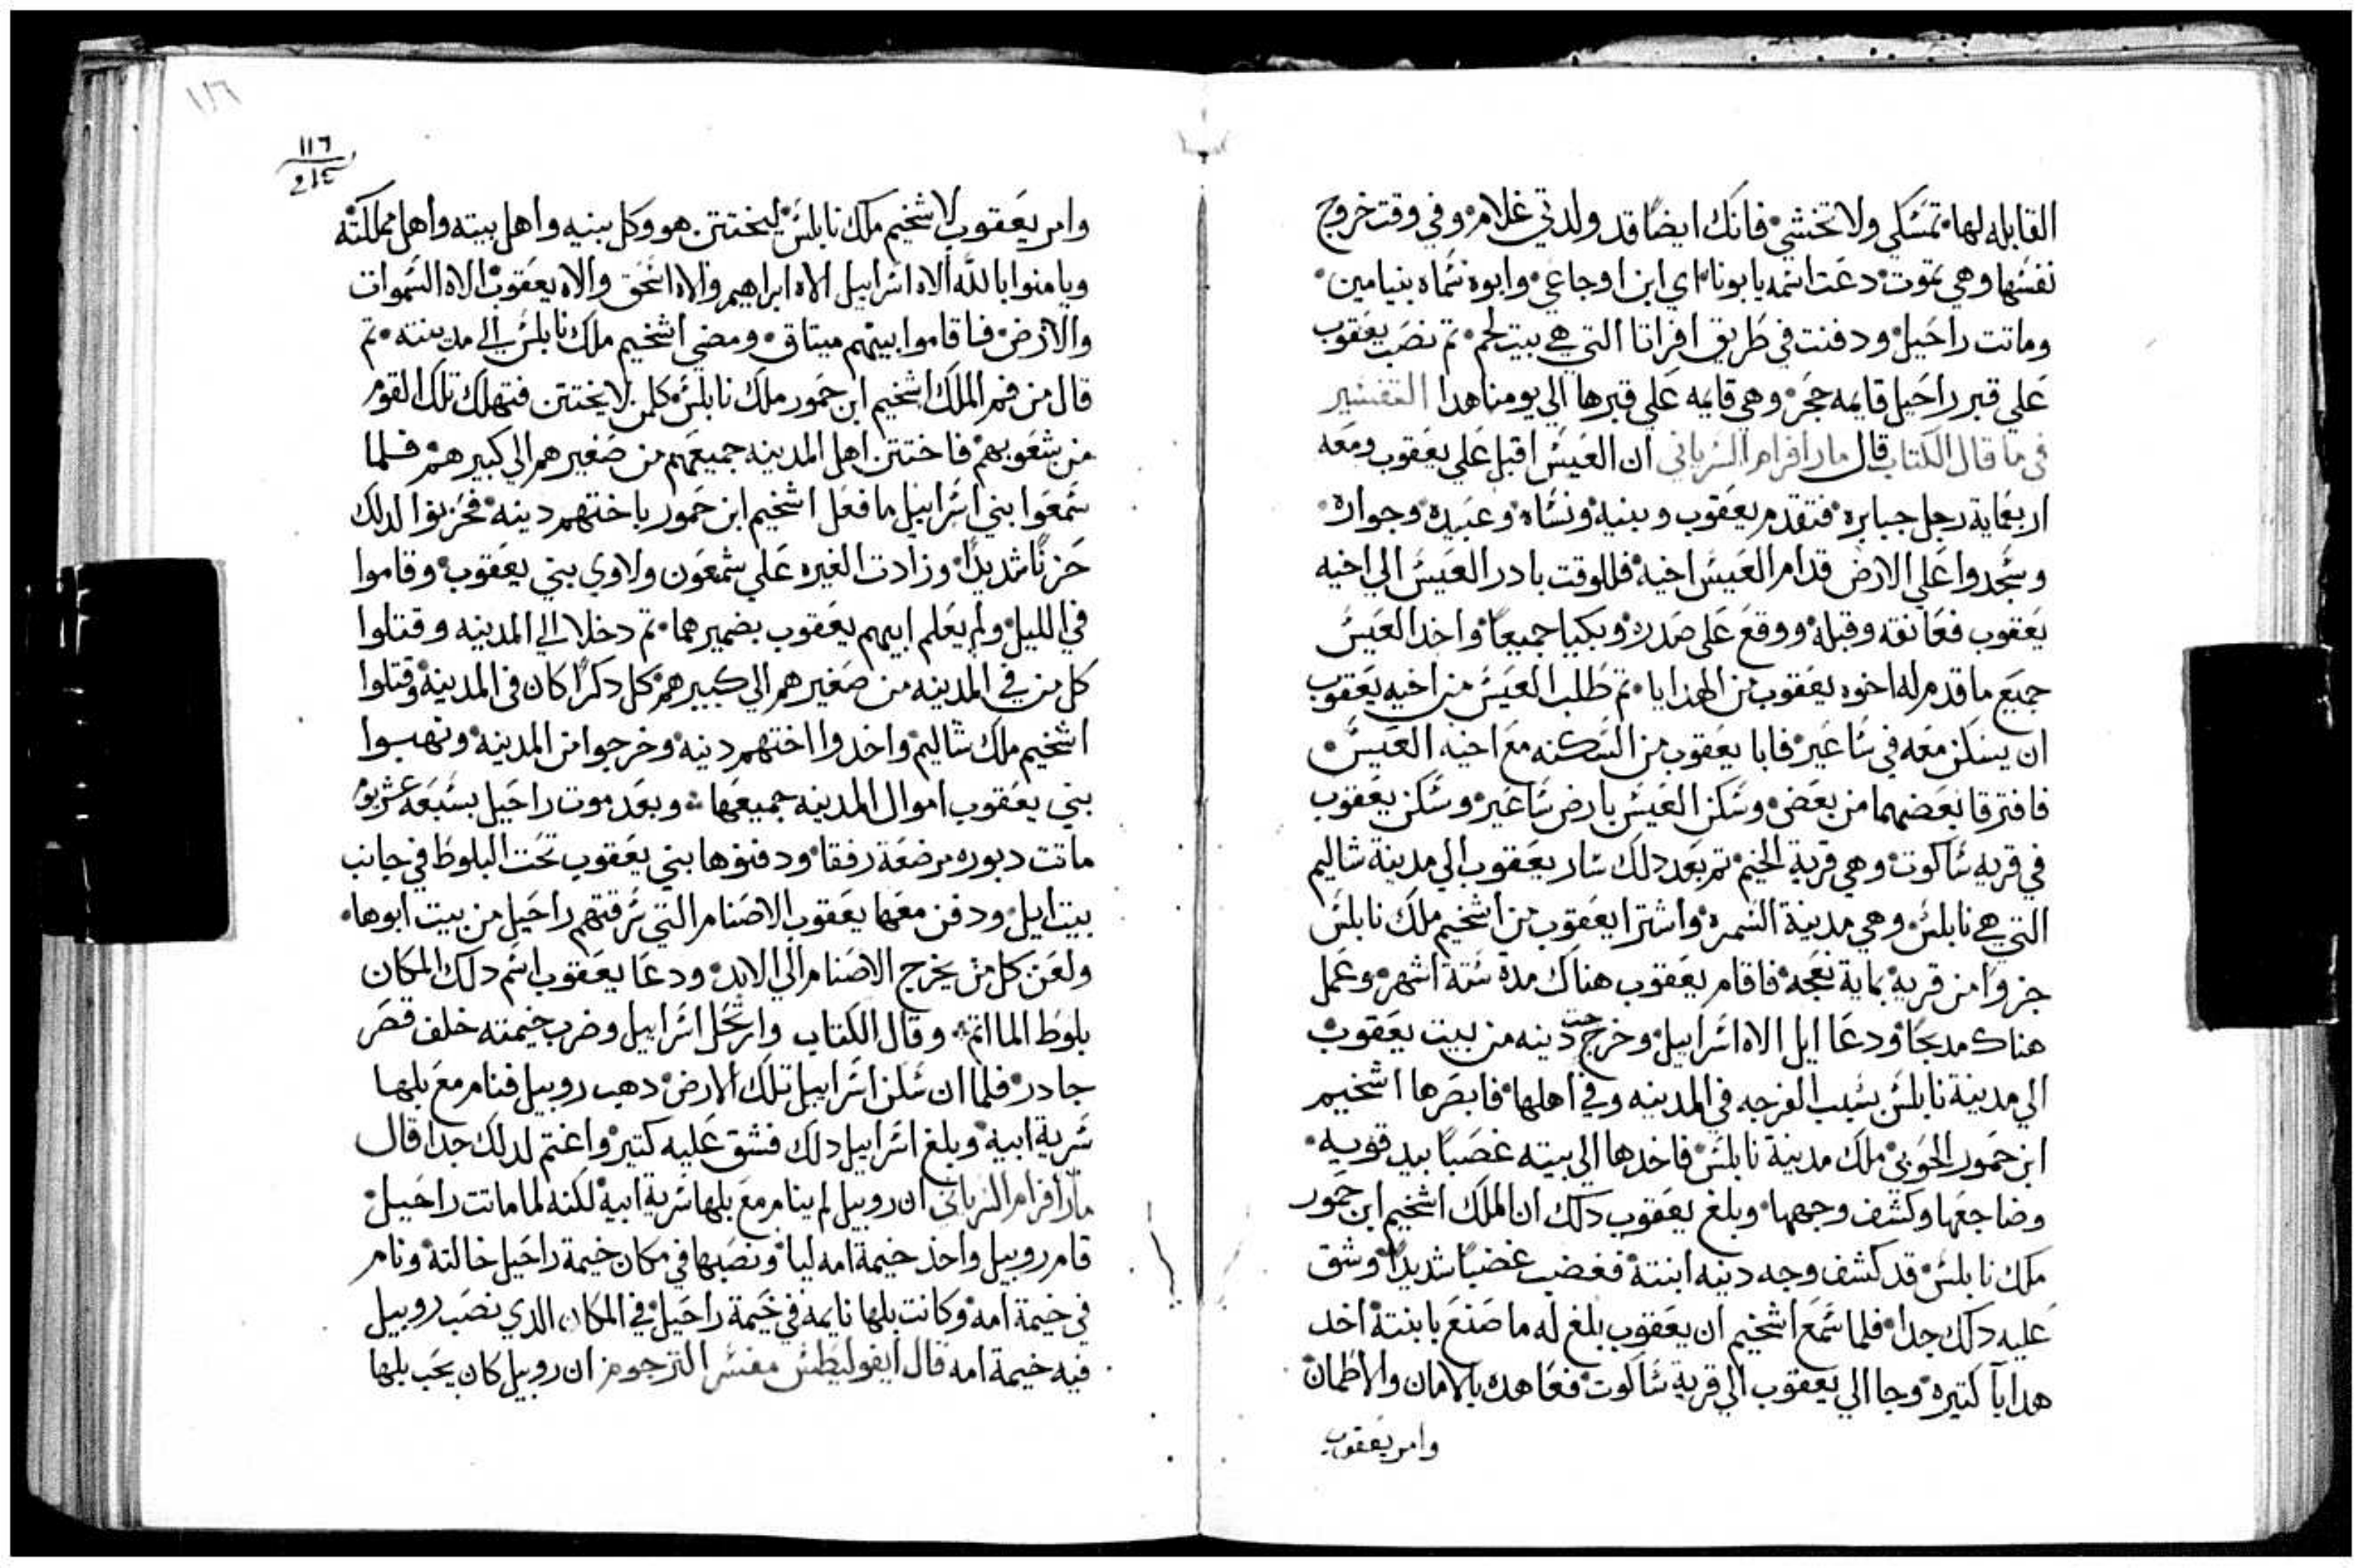 القابله لها تمسكي ولا تخشي فانك ايضًا قد ولدتي غلام وفي وقت خروج
نفسها وهي تموت دعت اسمه يابونا اي ابن اوجاعي وابوه سماه بنيامين
وماتت راحيل ودفنت في طريق افراتا التي هي بيت لحم تم نصب يعقوب
علي قبر راحيل قايمه حجر وهي قايمه علي قبرها الي يومنا هدا التفسير
في ما قال الكتاب قال مار افرام السرياني ان العيس اقبل علي يعقوب ومعه
اربعماية رجل جبابره فتقدم يعقوب وبنيه ونساه وعبيده وجواره
وسجدوا علي الارض قدام العيس اخيه فللوقت بادر العيس الي اخيه
يعقوب فعانقه وقبله ووقع علي صدره وبكيا جميعًا واخد العيس
جميع ما قدم له اخوه يعقوب من الهدايا تم طلب العيس من اخيه يعقوب
ان يسكن معه في ساعير فابا يعقوب من السكنه مع اخيه العيس
فافترقا بعضهما من بعض وسكن العيس بارض ساعير وسكن يعقوب
في قريه ساكوت وهي قرية الخيم تم بعد دلك سار يعقوب الي مدينة شاليم
التي هي نابلس وهي مدينة السمره واشترا يعقوب من اشخيم ملك نابلس
جزوًا من قريه بماية نعجه فاقام يعقوب هناك مدة ستة اشهر وعمل
هناك مدبحًا ودعا ايل الاه اسراييل وخرجت دينه من بيت يعقوب
الي مدينة نابلس بسبب الفرجه في المدينه وفي اهلها فابصرها اشخيم
ابن حمور الحوي ملك مدينة نابلس فاخدها الي بيته غصبًا بيد قويه
وضاجعها وكشف وجهها وبلغ يعقوب دلك ان الملك اشخيم ابن حمور
ملك نابلس قد كشف وجه دينه ابنته فغضب غضبًا شديدًا وشق
عليه دلك جدا فلما سمع اشخيم ان يعقوب بلغ له ما صنع بابنته اخد
هدايا كتيره وجا الي يعقوب الي قرية ساكوت فعاهده بالامان والاطمان
وامر يعقوب
١١٦
116
وامر يعقوب لاشخيم ملك نابلس ليختتن هو وكل بنيه واهل بيته واهل مملكته
ويامنوا بالله الاه اسراييل الاه ابراهيم والاه اسحق والاه يعقوب الاه السموات
والارض فاقاموا بينهم ميتاق ومضي اشخيم ملك نابلس الي مدينته تم
قال من فم الملك اشخيم ابن حمور ملك نابلس كلمن لا يختتن فتهلك تلك القوم
من شعوبهم فاختتن اهل المدينه جميعهم من صغيرهم الي كبيرهم فلما
سمعوا بني اسراييل ما فعل اشخيم ابن حمور باختهم دينه فحزنوا لدلك
حزنًا شديدًا وزادت الغيره علي شمعون ولاوي بني يعقوب وقاموا
في الليل ولم يعلم ابيهم يعقوب بضميرهما تم دخلا الي المدينه وقتلوا
كل من في المدينه من صغيرهم الي كبيرهم كل دكرًا كان في المدينه وقتلوا
اشخيم ملك شاليم واخدوا اختهم دينه وخرجوا من المدينه ونهبوا
بني يعقوب اموال المدينه جميعها وبعد موت راحيل بسبعة عشر يوم
ماتت دبوره مرضعة رفقا ودفنوها بني يعقوب تحت البلوط في جانب
بيت ايل ودفن معها يعقوب الاصنام التي سرقتهم راحيل من بيت ابوها
ولعن كل من يخرج الاصنام الي الابد ودعا يعقوب اسم دلك المكان
بلوط الماتم وقال الكتاب وارتحل اسراييل وضرب خيمته خلف قصر
جادر فلما ان سكن اسراييل تلك الارض دهب روبيل فنام مع بلها
سرية ابيه وبلغ اسراييل دلك فشق عليه كتير واغتم لدلك جدا قال
مار افرام السرياني ان روبيل لم ينام مع بلها سرية ابيه لكنه لما ماتت راحيل
قام روبيل واخذ خيمة امه ليا ونصبها في مكان خيمة راحيل خالته ونام
في خيمة امه وكانت بلها نايمه في خيمة راحيل في المكان الدي نصب روبيل
فيه خيمة امه قال ايفوليطس مفسر الترجوم ان روبيل كان يحب بلها